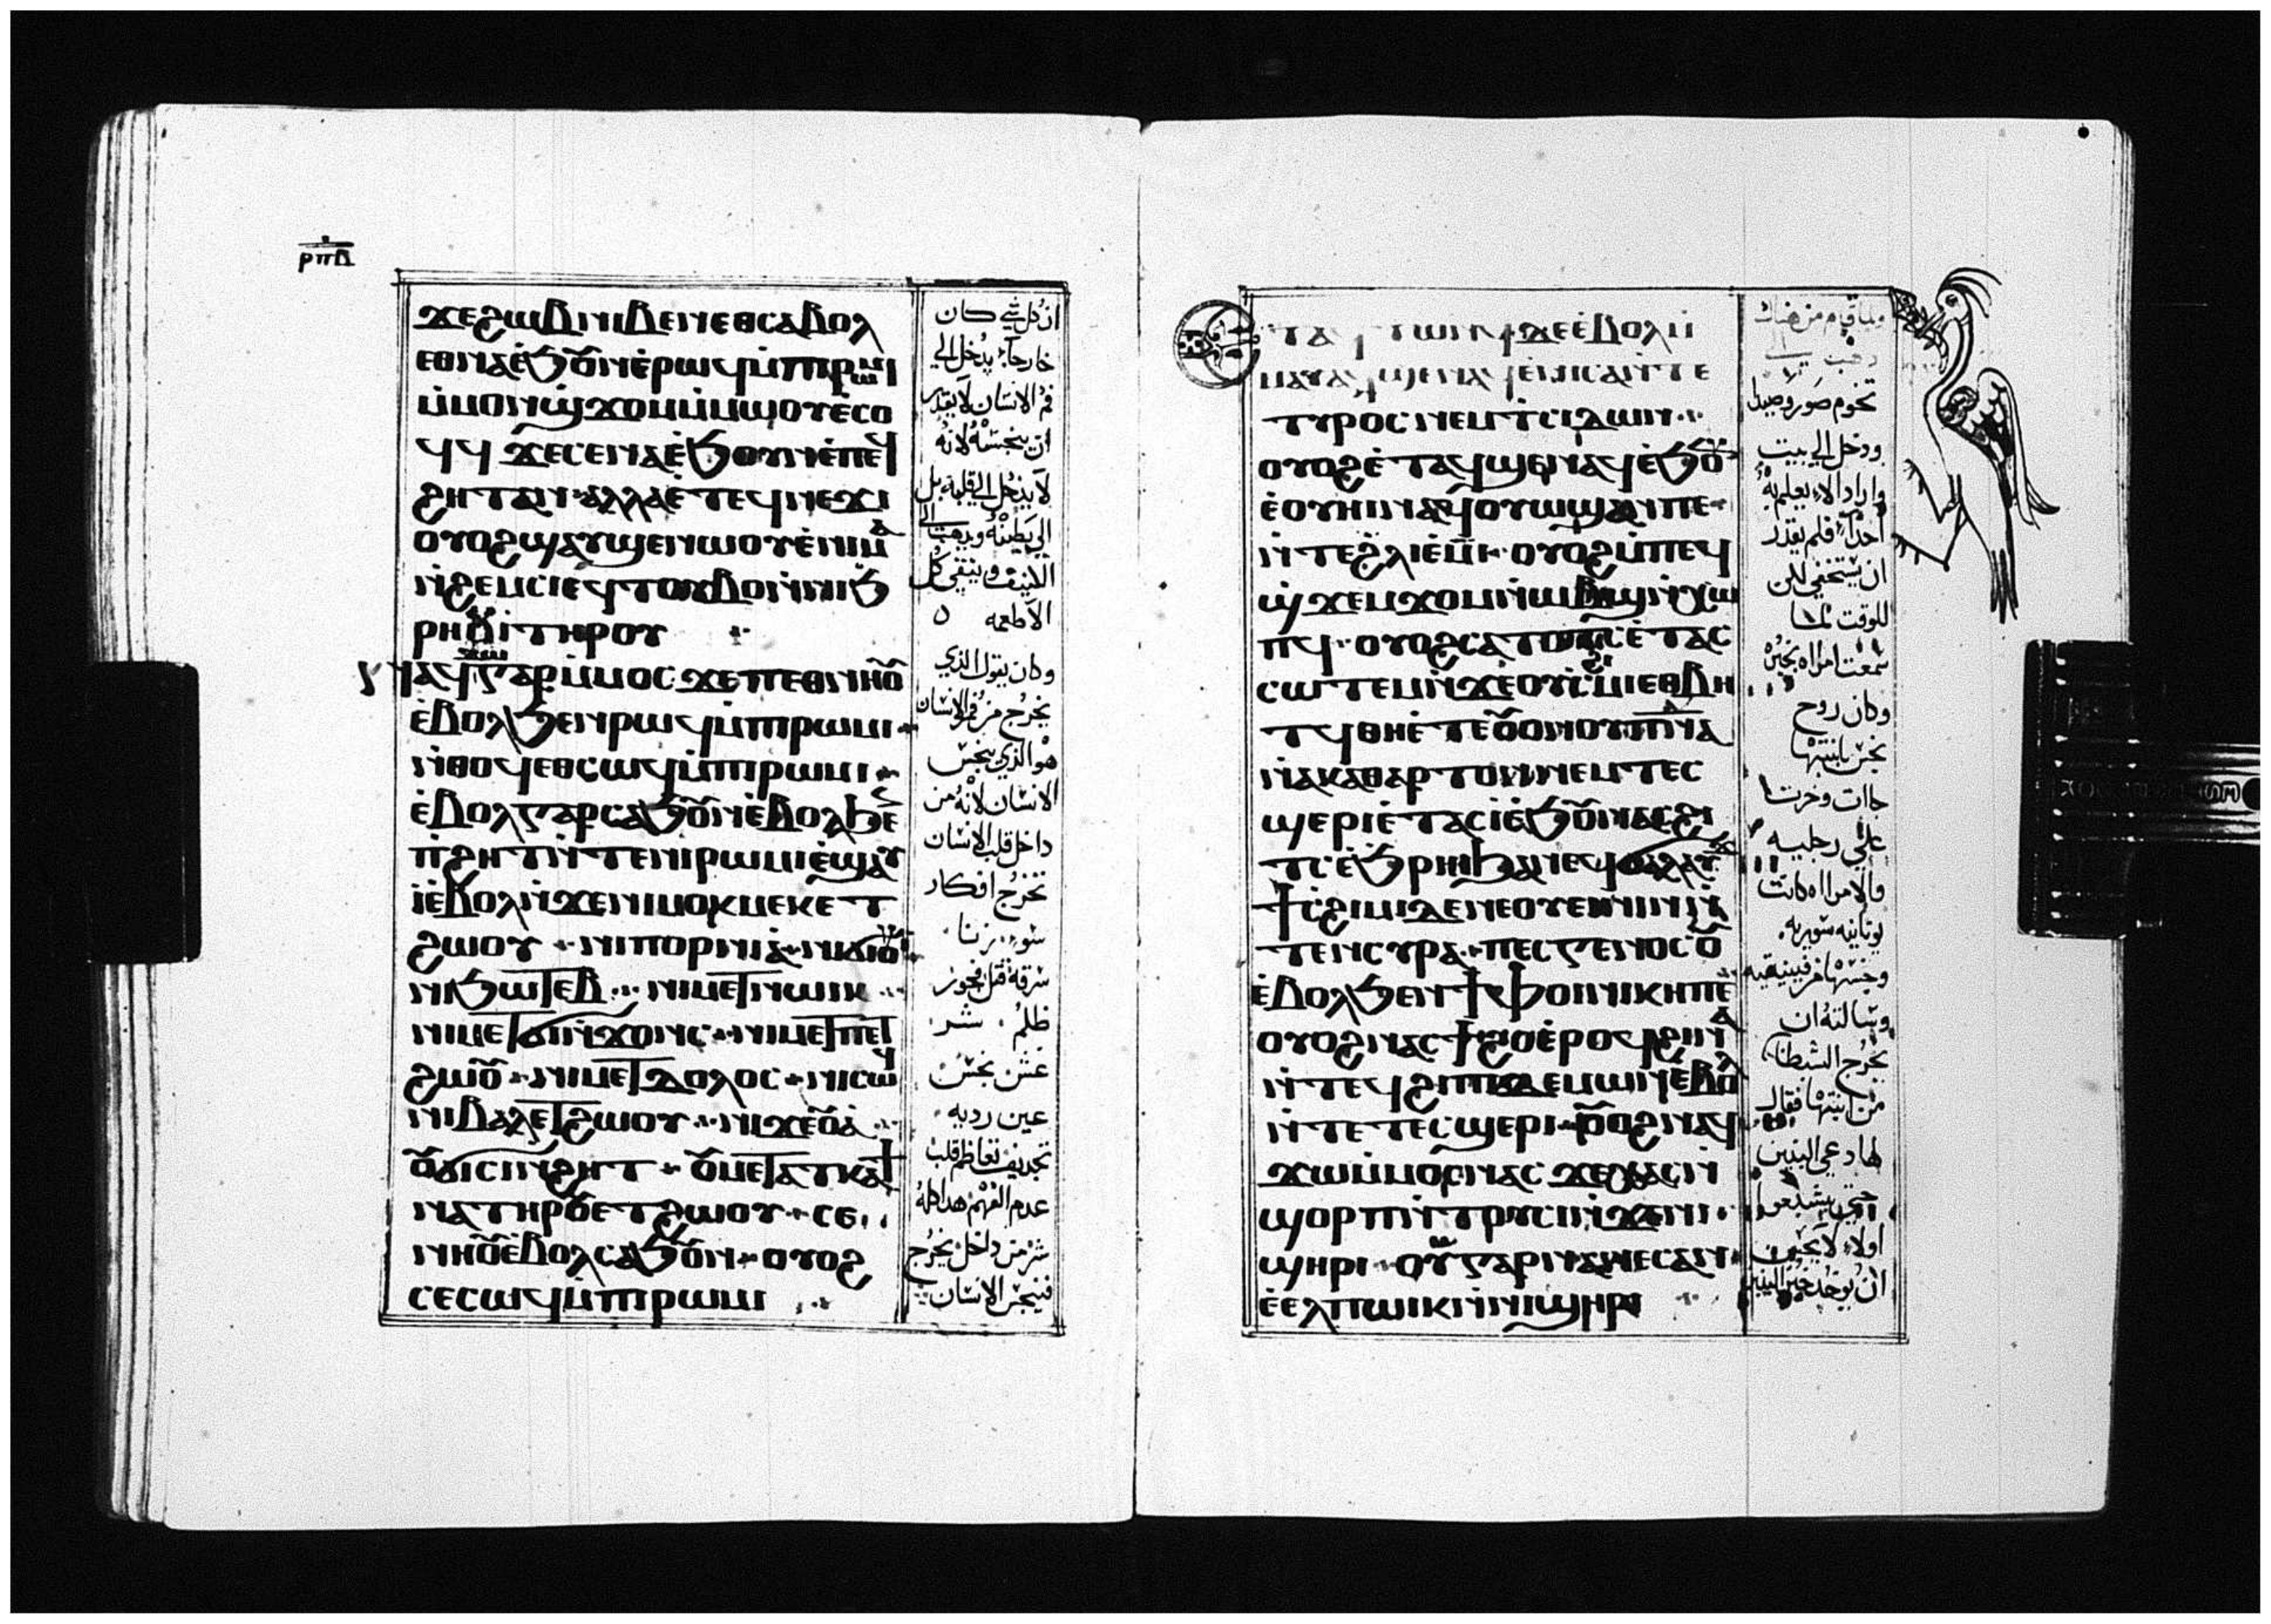 ⲣⲡⲃ
ϫⲉϩⲱⲃⲛⲓⲃⲉⲛⲉⲑⲥⲁⲃⲟⲗ
ⲉⲑⲛⲁⲉ̀ϧⲟⲩⲛⲉ̀ⲣⲱϥⲙ̀ⲡⲓⲣⲱⲙⲓ
ⲙ̀ⲙⲟⲛϣϫⲟⲙⲙ̀ⲙⲱⲟⲩⲉ̀ⲥⲟ
ϥϥ ϫⲉⲥⲉⲛⲁⲉ̀ϧⲟⲩⲛⲉ̀ⲡⲉϥ
ϩⲏⲧⲁⲛ·ⲁⲗⲗⲁⲉ̀ⲧⲉϥⲛⲉϫⲓ
ⲟⲩⲟϩϣⲁⲩϣⲉⲛⲱⲟⲩⲉ̀ⲛⲓⲙⲁ
ⲛ̀ϩⲉⲙⲥⲓⲉϥⲧⲟⲩⲃⲟⲛ̀ⲛⲓϧ
ⲣⲏⲟⲩⲓ̀ⲧⲏⲣⲟⲩ
ⲛⲁϥϫⲱⲅⲁⲣⲙ̀ⲙⲟⲥ ϫⲉⲡⲉⲑⲛⲏⲟⲩ
ⲉ̀ⲃⲟⲗϧⲉⲛⲣⲱϥⲙ̀ⲡⲓⲣⲱⲙⲓ·
ⲛ̀ⲑⲟϥⲉⲑⲥⲱϥⲙ̀ⲡⲓⲣⲱⲙⲓ·
ⲉ̀ⲃⲟⲗⲅⲁⲣⲥⲁϧⲟⲩⲛⲉ̀ⲃⲟⲗϧⲉ
ⲡ̀ϩⲏⲧⲛ̀ⲧⲉⲛⲓⲣⲱⲙⲓⲉ̀ϣⲁⲩ
ⲓ̀ⲉ̀ⲃⲟⲗⲛ̀ϫⲉⲛⲓⲙⲟⲕⲙⲉⲕⲉⲧ
ϩⲱⲟⲩ·ⲛⲓⲡⲟⲣⲛⲓⲁ̀·ⲛⲓϭⲓⲟⲩⲓ̀
ⲛⲓϧⲱⲧⲉⲃ·ⲛⲓⲙⲉⲧⲛⲱⲓⲕ
ⲛⲓⲙⲉⲧϭⲓⲛ̀ϫⲟⲛⲥ·ⲛⲓⲙⲉⲧⲡⲉⲧ
ϩⲱⲟⲩ·ⲛⲓⲙⲉⲧⲇⲟⲗⲟⲥ·ⲛⲓⲥⲱϥ
ⲛⲓⲃⲁⲗⲉⲧϩⲱⲟⲩ·ⲛⲓϫⲉⲟⲩⲁ̀
ⲟⲩϭⲓⲥⲓⲛ̀ϩⲏⲧ·ⲟⲩⲙⲉⲧⲁⲧⲕⲁϯ
ⲛⲁⲓⲧⲏⲣⲟⲩⲉⲧϩⲱⲟⲩ·ⲥⲉ
ⲛⲏⲟⲩⲉ̀ⲃⲟⲗⲥⲁϧⲟⲩⲛ·ⲟⲩⲟϩ
ⲥⲉⲥⲱϥⲙ̀ⲡⲓⲣⲱⲙⲓ
ان كل شي كان
خارجاً يدخل الي
فم الانسان لا يقدر
ان ينجسه لانه
لا يدخل الي قلبه بل
الي بطنه ويذهب الي
الاطعمه
وكان يقول الذي
يخرج من فم الانسان
هو الذي ينجس
الانسان لانه من
داخل قلب الانسان
تخرج افكار
سوء زنا
سرقة قتل فجور
ظلم شر
غش نجس
عين رديه
تجديف تعاظم قلب
عدم الفهم هذا كله
شر من داخل يخرج
فينجس الانسان
ⲉⲧⲁϥⲧⲱⲛϥϫⲉⲉ̀ⲃⲟⲗⲙ̀
ⲙⲁⲩⲁϥϣⲉⲛⲁϥⲉ̀ⲛⲓⲥⲁⲛ̀ⲧⲉ
ⲧⲩⲣⲟⲥⲛⲉⲙⲧ̀ⲥⲓⲇⲱⲛ
ⲟⲩⲟϩⲉ̀ⲧⲁϥϣⲉⲛⲁϥⲉ̀ϧⲟⲩⲛ
ⲉ̀ⲟⲩⲏⲓⲛⲁϥⲟⲩⲱϣⲁⲛⲡⲉ
ⲛ̀ⲧⲉϩ̀ⲗⲓⲉ̀ⲙⲓ·ⲟⲩⲟϩⲙ̀ⲡⲉϥ
ϣϫⲉⲙϫⲟⲙⲛ̀ⲱⲃϣⲛ̀ⲭⲱ
ⲡϥ·ⲟⲩⲟϩⲥⲁⲧⲟⲧⲥⲉ̀ⲧⲁⲥ
ⲥⲱⲧⲉⲙⲛ̀ϫⲉⲟⲩⲥϩⲓⲙⲓⲉⲑⲃⲏ
ⲧϥⲑⲏⲉ̀ⲧⲉⲟⲩⲟⲛⲟⲩⲡⲛⲁ
ⲛ̀ⲁⲕⲁⲑⲁⲣⲧⲟⲛⲛⲉⲙⲧⲉⲥ
ϣⲉⲣⲓⲉ̀ⲧⲁⲥⲓ̀ⲉ̀ϧⲟⲩⲛⲁⲥϩⲓ
ⲧⲥⲉ̀ϧⲣⲏⲓϧⲁⲛⲉϥϭⲁⲗⲁⲩϫ
ϯⲥϩⲓⲙⲓⲇⲉⲛⲉⲟⲩⲉⲓⲛⲓⲛ
ⲧⲉⲛⲥⲩⲣⲁ·ⲡⲉⲥⲅⲉⲛⲟⲥⲟⲩ
ⲉ̀ⲃⲟⲗϧⲉⲛϯⲫⲟⲓⲛⲓⲕⲏⲡⲉ
ⲟⲩⲟϩⲛⲁⲥϯϩⲟⲉ̀ⲣⲟϥϩⲓⲛⲁ
ⲛ̀ⲧⲉϥϩⲓⲡⲓⲇⲉⲙⲱⲛⲉ̀ⲃⲟⲗ
ⲛ̀ⲧⲉⲧⲉⲥϣⲉⲣⲓ·ⲟⲩⲟϩⲛⲁϥ
ϫⲱⲙ̀ⲙⲟⲥⲛⲁⲥ ϫⲉⲭⲁⲥⲛ̀
ϣⲟⲣⲡⲛ̀ⲧⲟⲩⲥⲓⲛ̀ϫⲉⲛⲓ
ϣⲏⲣⲓ·ⲟⲩⲅⲁⲣⲛⲁⲛⲉⲥⲁⲛ
ⲉ̀ⲉⲗⲡⲱⲓⲕⲛ̀ⲛⲓϣⲏⲣⲓ
ولما قام من هناك
تخوم صور وصيدا
ودخل الي بيت
واراد الا يعلم به
احداً فلم يقدر
ان يستخفي لكن
للوقت لما
سمعت امراه بخبره
وكان روح
نجس بابنتها
جات وخرت
علي رجليه
والامراه كانت
يونانيه سوريه
وسالته ان
يخرج الشيطان
من ابنتها فقال
لها دعي البنين
حتي يشبعوا
اولا لا يحسن
ان يوخذ خبز البنين